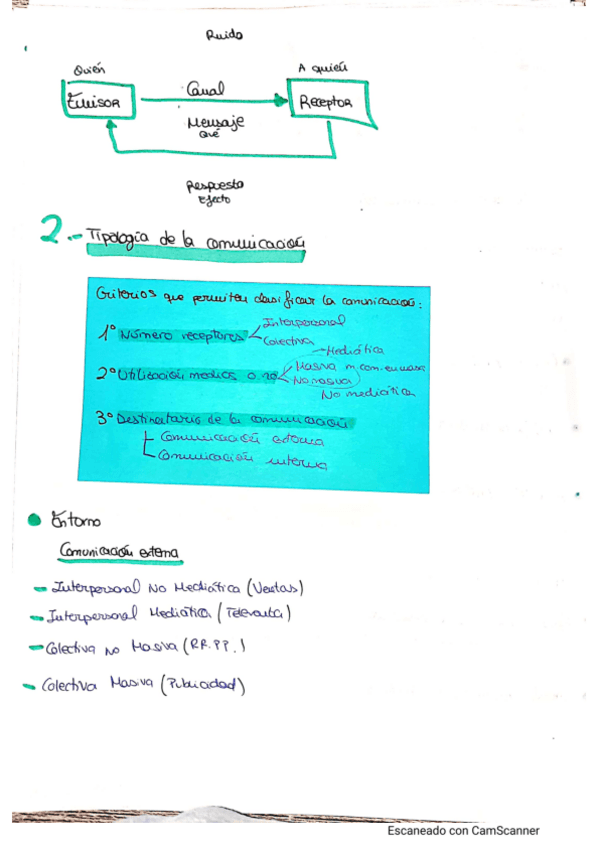 Ruido
Quién
A quién
Emisor
Canal
Receptor
Mensaje
Qué
Respuesta
Efecto
2.- Tipología de la comunicación
Criterios que permiten clasificar la comunicación:
1º Número receptores
Interpersonal
Colectiva
Mediática
2º Utilización medios o no
Masiva m.com.en masa
No masiva
No mediática
3º Destinatario de la comunicación
Comunicación externa
Comunicación interna
Entorno
Comunicación externa
- Interpersonal No Mediática (Ventas)
- Interpersonal Mediática (Televenta)
- Colectiva No Masiva (RR.PP.)
- Colectiva Masiva (Publicidad)
Escaneado con CamScanner